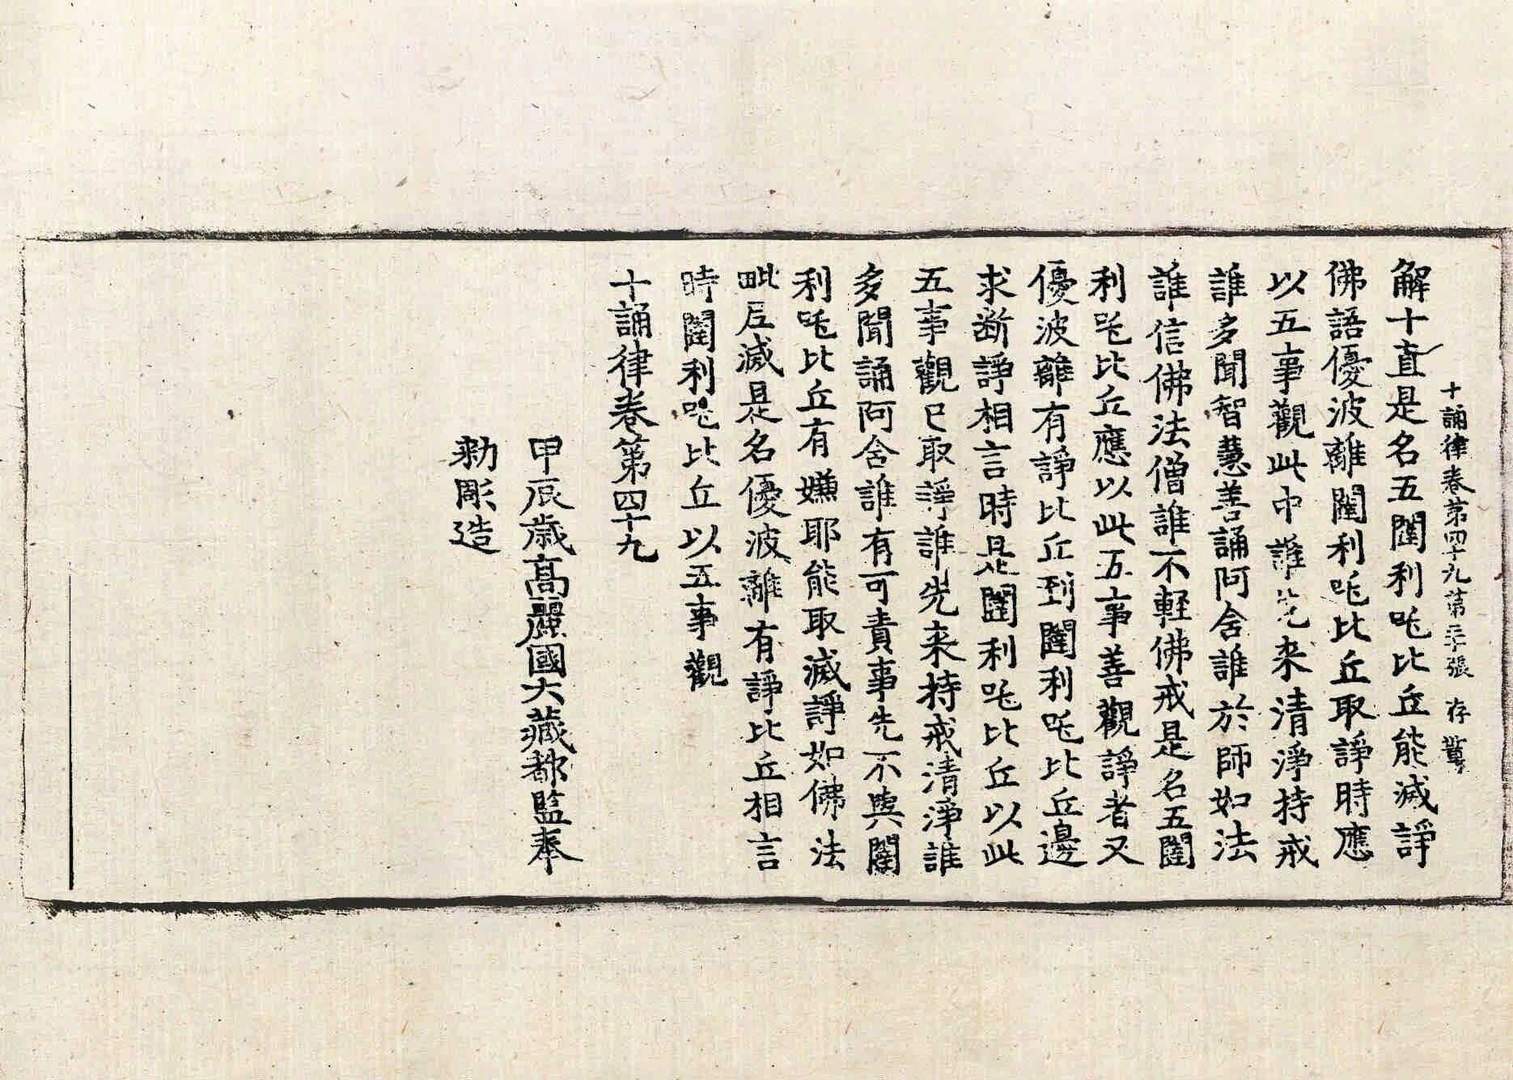 十誦律卷第四十九第二十張 存
解十直是名五闥利吒比丘能滅諍
佛語優波離闥利吒比丘取諍時應
以五事觀此中誰先来清淨持戒
誰多聞智慧善誦阿含誰於師如法
誰信佛法僧誰不輕佛戒是名五闥
利吒比丘應以此五事善觀諍者又
優波離有諍比丘到闥利吒比丘邊
求斷諍相言時是闥利吒比丘以此
五事觀已取諍誰先来持戒清淨誰
多聞誦阿含誰有可責事先不與闥
利吒比丘有嫌耶能取滅諍如佛法
毗尼滅是名優波離有諍比丘相言
時闥利吒比丘以五事觀
十誦律卷第四十九
甲辰歲高麗國大藏都監奉
勑彫造